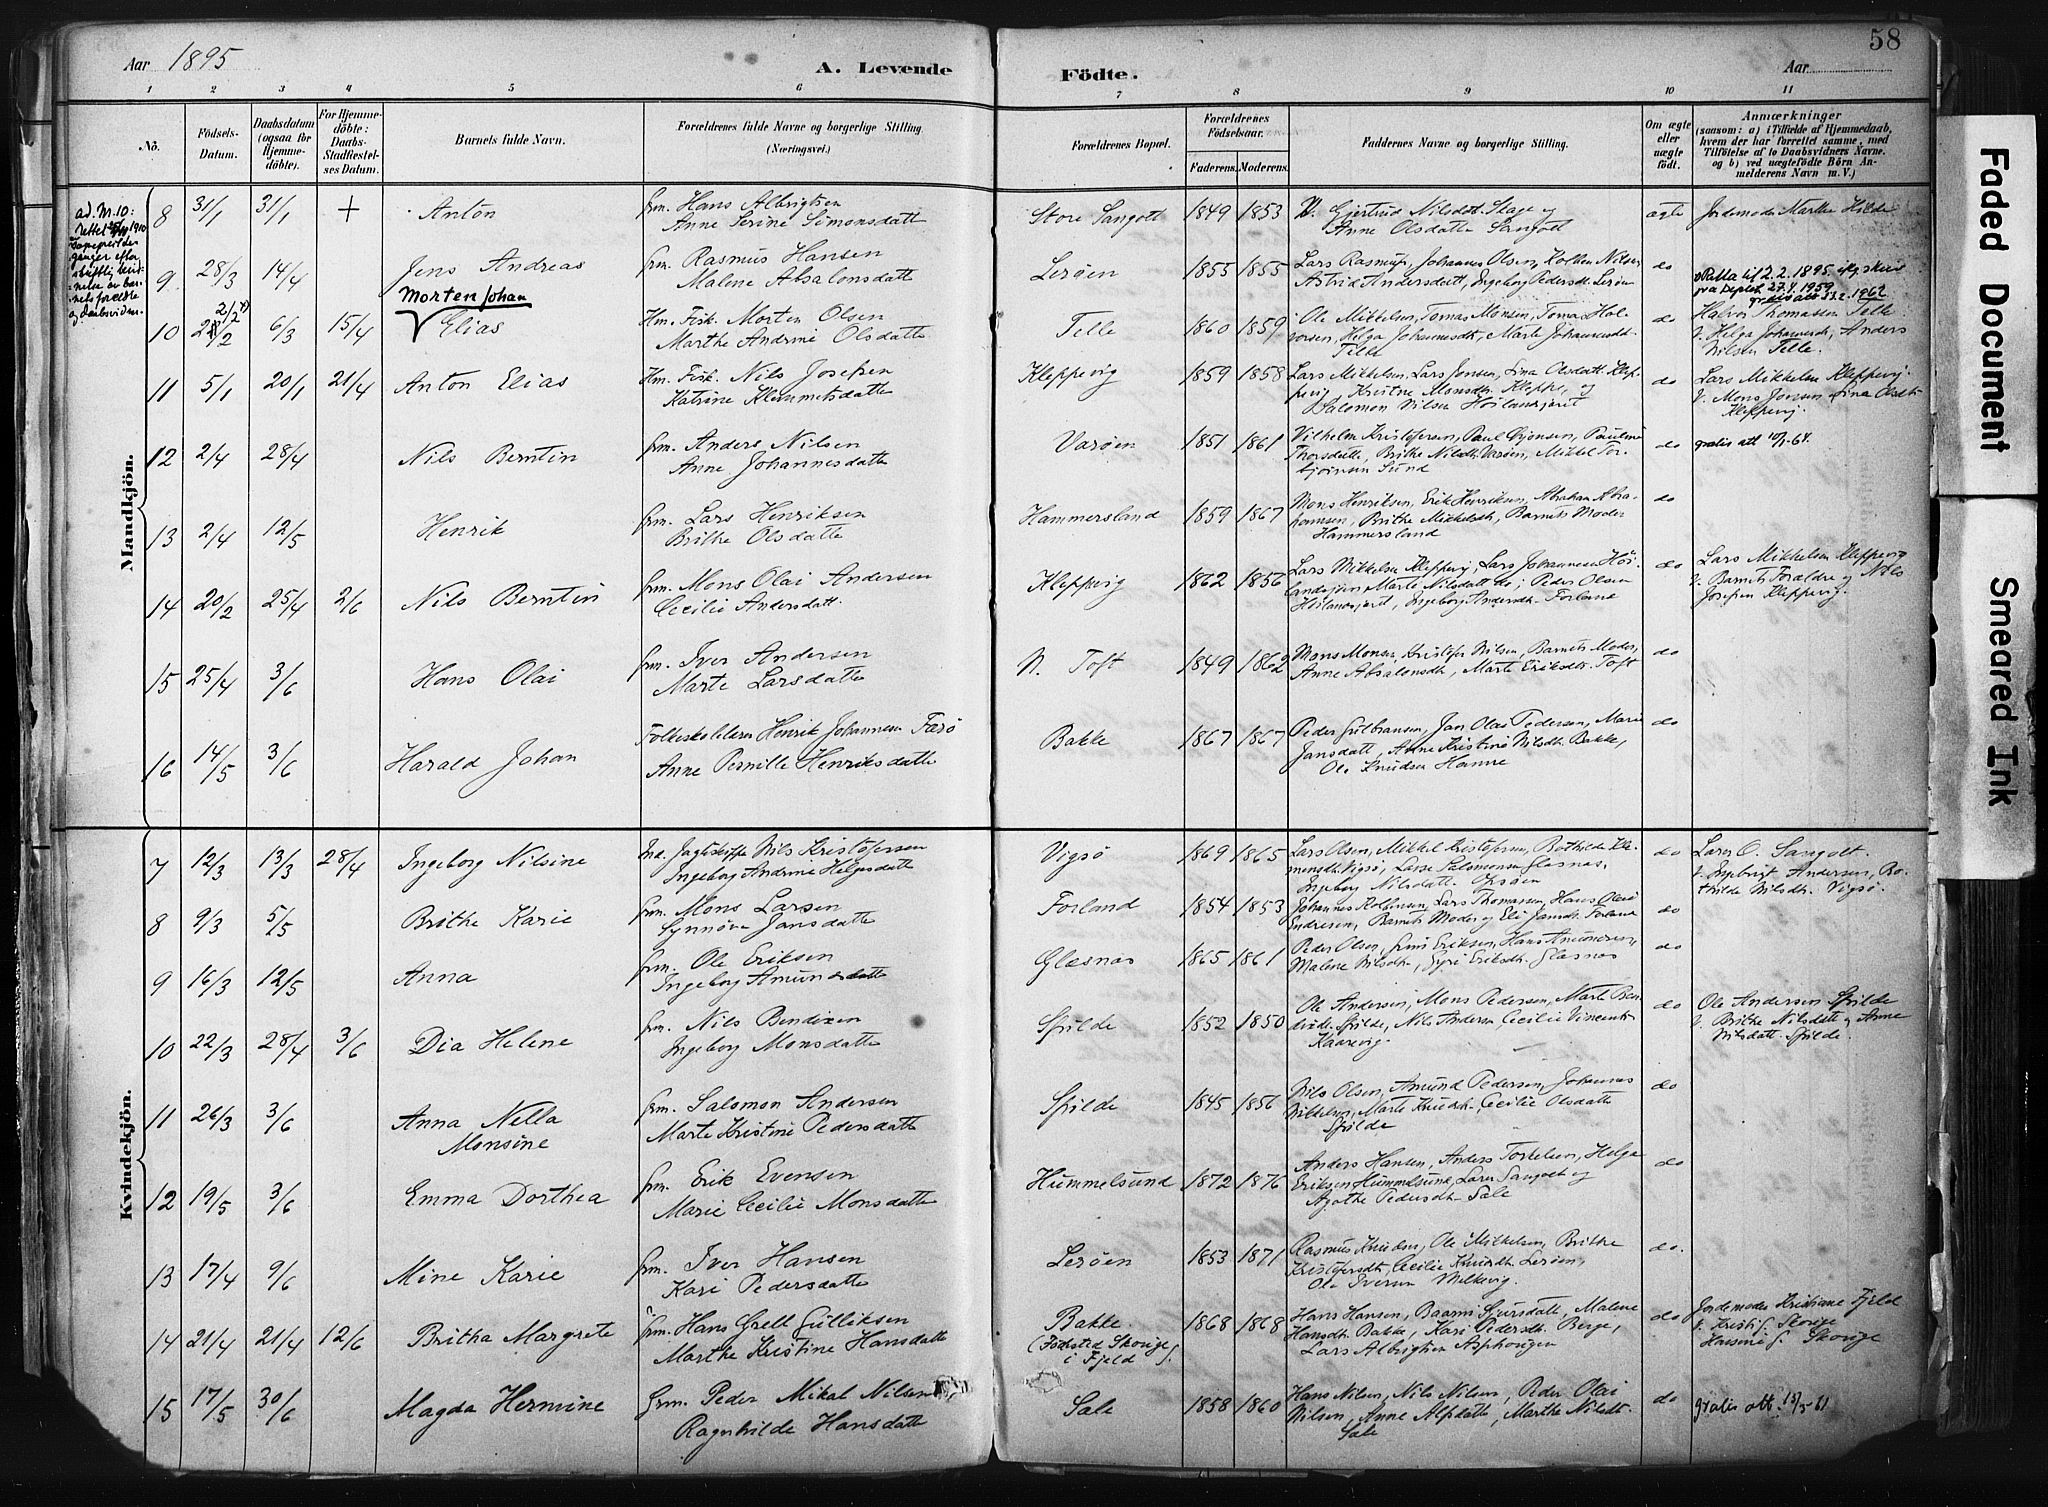 58
Aar 1895
A. Levende Födte.
Aar
1 2 3 4 5 6 7 8 9 10 11
No.
Födsels-Datum.
Daabsdatum (ogsaa for Hjemmedöbte).
For Hjemmedöbte: Daabs-Stadfæstelses Datum.
Barnets fulde Navn.
Forældrenes fulde Navne og borgerlige Stilling.
(Næringsvei.)
Forældrenes Bopæl.
Forældrenes Födselsaar.
Faderens. Moderens.
Faddernes Navne og borgerlige Stilling.
Om ægte eller uægte födt.
Anmærkninger
(saasom: a) i Tilfælde af Hjemmedaab, hvem der har forrettet samme, med Tilföielse af to Daabsvidners Navne, og b) ved uægtefödte Börn Anmelderens Navn m. V.)
Mandkjön.
ad. Nr. 10:
8 31/1 31/1 + Anton
Hans Albrigtsen
Anne Serine Simonsdatt
Store Sangolt 1849 1853
Gjertrud Nilsdt. Skage og
Anne Olsdatte Sangolt
ægte
Jordemoder Marthe Hilde
9 28/3 14/4 Jens Andreas
Rasmus Hansen
Malene Absalonsdatt
Leröen 1855 1855
Astrid Andersdatt, Ingeborg Pedersdt. Leröen
do
Morten Johan
10 6/3 15/4 Elias
Hm. Fisk. Morten Olsen
Marthe Andrine Olsdatte
Telle 1860 1859
Ole Mikkelsen, Tomas Monsen, Toma Halvorsen, Helga Johannesdt, Marte Johannesdt
Telle
do
Halvor Thomassen Telle
V. Helga Johannesdt, Anders
Nilsen Telle.
11 5/1 20/1 21/4 Anton Elias
Hm. Fisk. Nils Josefsen
Katrine Klemmetsdatte
Kleppevig 1859 1858
Lars Mikkelsen, Lars Jonsen, Sina Olsdatt. Kleppevig
Salomon Nilsen Hoilandsjoret
do
Lars Mikkelsen Kleppevig
V. Mons Jonsen Sina Olsdt.
Kleppevig.
12 2/4 28/4 Nils Berntin
Anders Nilsen
Anne Johannesdatte
Varöen 1851 1861
Vilhelm Kristofersen, Paul Gjönsen, Pauline
Thorsdatte, Brithe Nilsdt. Varöen, Mikkel Torbjörnsen Sund
do
13 2/4 12/5 Henrik
Lars Henriksen
Brithe Olsdatte
Hammersland 1859 1867
Mons Henriksen, Erik Henriksen, Abraham Abrahamsen, Brithe Mikkelsdt, Barnets Moder
Hammersland
do
14 20/2 25/4 2/6 Nils Berntin
Mons Olai Andersen
Cecilie Andersdatt.
Kleppvig 1862 1856
Lars Mikkelsen Kleppevig, Lars Johannesen Höilandsjor, Marte Nilsdatt do, Peder Olsen
Hoilandsjoret, Ingeborg Andersdt. Forland
do
Lars Mikkelsen Kleppevig
V. Barnets Forældre og Nils
Josefsen Kleppevig.
15 25/4 3/6 Hans Olai
Iver Andersen
Marte Larsdatte
N. Toft 1849 1862
Mons Monsen, Kristofer Nilsen, Barnets Moder,
Anne Absalonsdt, Marte Eriksdt. Toft
do
16 14/5 3/6 Harald Johan
Folkeskolelærer Henrik Johannesen Farö
Anne Pernille Henriksdatte
Bakke 1867 1867
Peder Gulbransen, Jan Olai Pedersen, Marie
Jansdatt, Anne Kristine Nilsdt. Bakke,
Ole Knudsen Hamne
do
Kvindekjön.
7 12/3 13/3 28/4 Ingeborg Nilsine
Nils Kristofersen
Ingeborg Andrine Helgesdatte
Vigsö 1869 1865
Lars Olsen, Mikkel Kristofersen, Bothilde Klemensdt. Vigsö, Lasse Salomonsen Glesnæs,
Ingeborg Nilsdatt.
do
Lars O. Sangolt.
V. Ingebrigt Andersen, Bothilde Nilsdt. Vigsö.
8 9/3 5/5 Brithe Karie
Mons Larsen
Synnöve Jansdatte
Forland 1854 1853
Johannes Kolbensen, Lars Thomassen, Hans Olai
Endresen, Barnets Moder og Eli Jansdt. Forland
do
9 16/3 12/5 Anna
Ole Eriksen
Ingeborg Amundsdatte
Glesnæs 1865 1861
Peder Olsen, Jens Eriksen, Hans Amundsen,
Malene Nilsdt., Siri Eriksdt. Glesnæs
do
10 22/3 28/4 3/6 Dia Helene
Nils Bendixen
Ingeborg Monsdatte
Spilde 1852 1850
Ole Andersen, Mons Pedersen, Marte
Spilde, Nils Andersen Cecilie Vincentsdt
Kaarevig.
do
Ole Andersen Spilde
V. Brithe Nilsdatt og Anne
Nilsdatt. Spilde.
11 26/3 3/6 Anna Nella
Monsine
Salomon Andersen
Marte Kristine Pedersdatte
Spilde 1845 1856
Nils Olsen, Amund Pedersen, Johannes
Mikkelsen, Marte Knudsdt. Cecilie Olsdatte
Spilde
do
12 19/5 3/6 Emma Dorthea
Erik Evensen
Marie Cecilie Monsdatte
Hummelsund 1872 1876
Anders Hansen, Anders Torkelsen, Helga
Eriksen Hummelsund, Lars Sangolt og
Agathe Pedersdt. Sale
do
13 17/4 9/6 Mine Karie
Iver Hansen
Kari Pedersdatte
Leröen 1853 1871
Rasmus Knudsen, Ole Mikkelsen, Brithe
Kristofersdt, Cecilie Knudsdt. Leröen,
Ole Iversen Milkevig.
do.
14 21/4 21/4 12/6 Britha Margrete
Hans Grett Gulliksen
Marthe Kristine Hansdatte
Bakke
(Födested Skoige
i Fjeld)
1868 1868
Hans Hansen, Baarni Sjursdatt, Malene
Hansdt. Bakke, Kari Pedersdt. Berge,
Lars Albrigtsen Asphougen
do
Jordemoder Kristiane Fjeld
15 17/5 30/6 Magda Hermine
Peder Mikal Nilsen
Ragnhilde Hansdatte
Sale 1858 1860
Hans Nilsen, Nils Nilsen, Peder Olai
Nilsen, Anne Alfsdatte, Marthe Nilsdt.
Sale
do
gratis att. 15/5-61
Faded Document
Smeared Ink